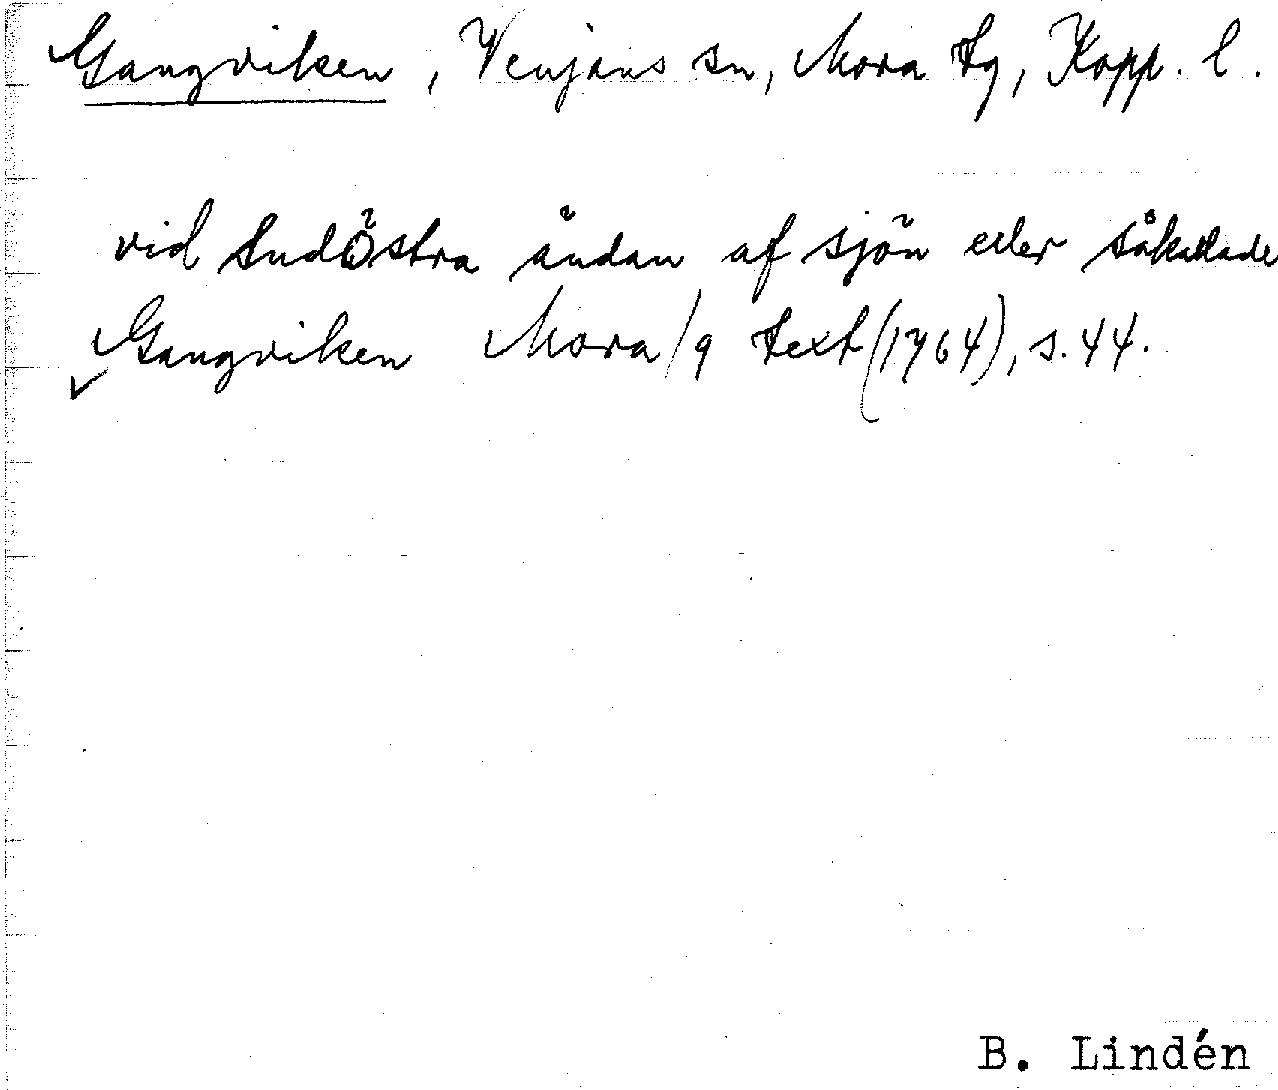 Gangviken, Venjans sn, Mora tg, Kopp. l.
vid SudÖstra ändan af sjön eller såkallade
Gangviken Mora/9 text (1764), s. 44.
B. Lindén